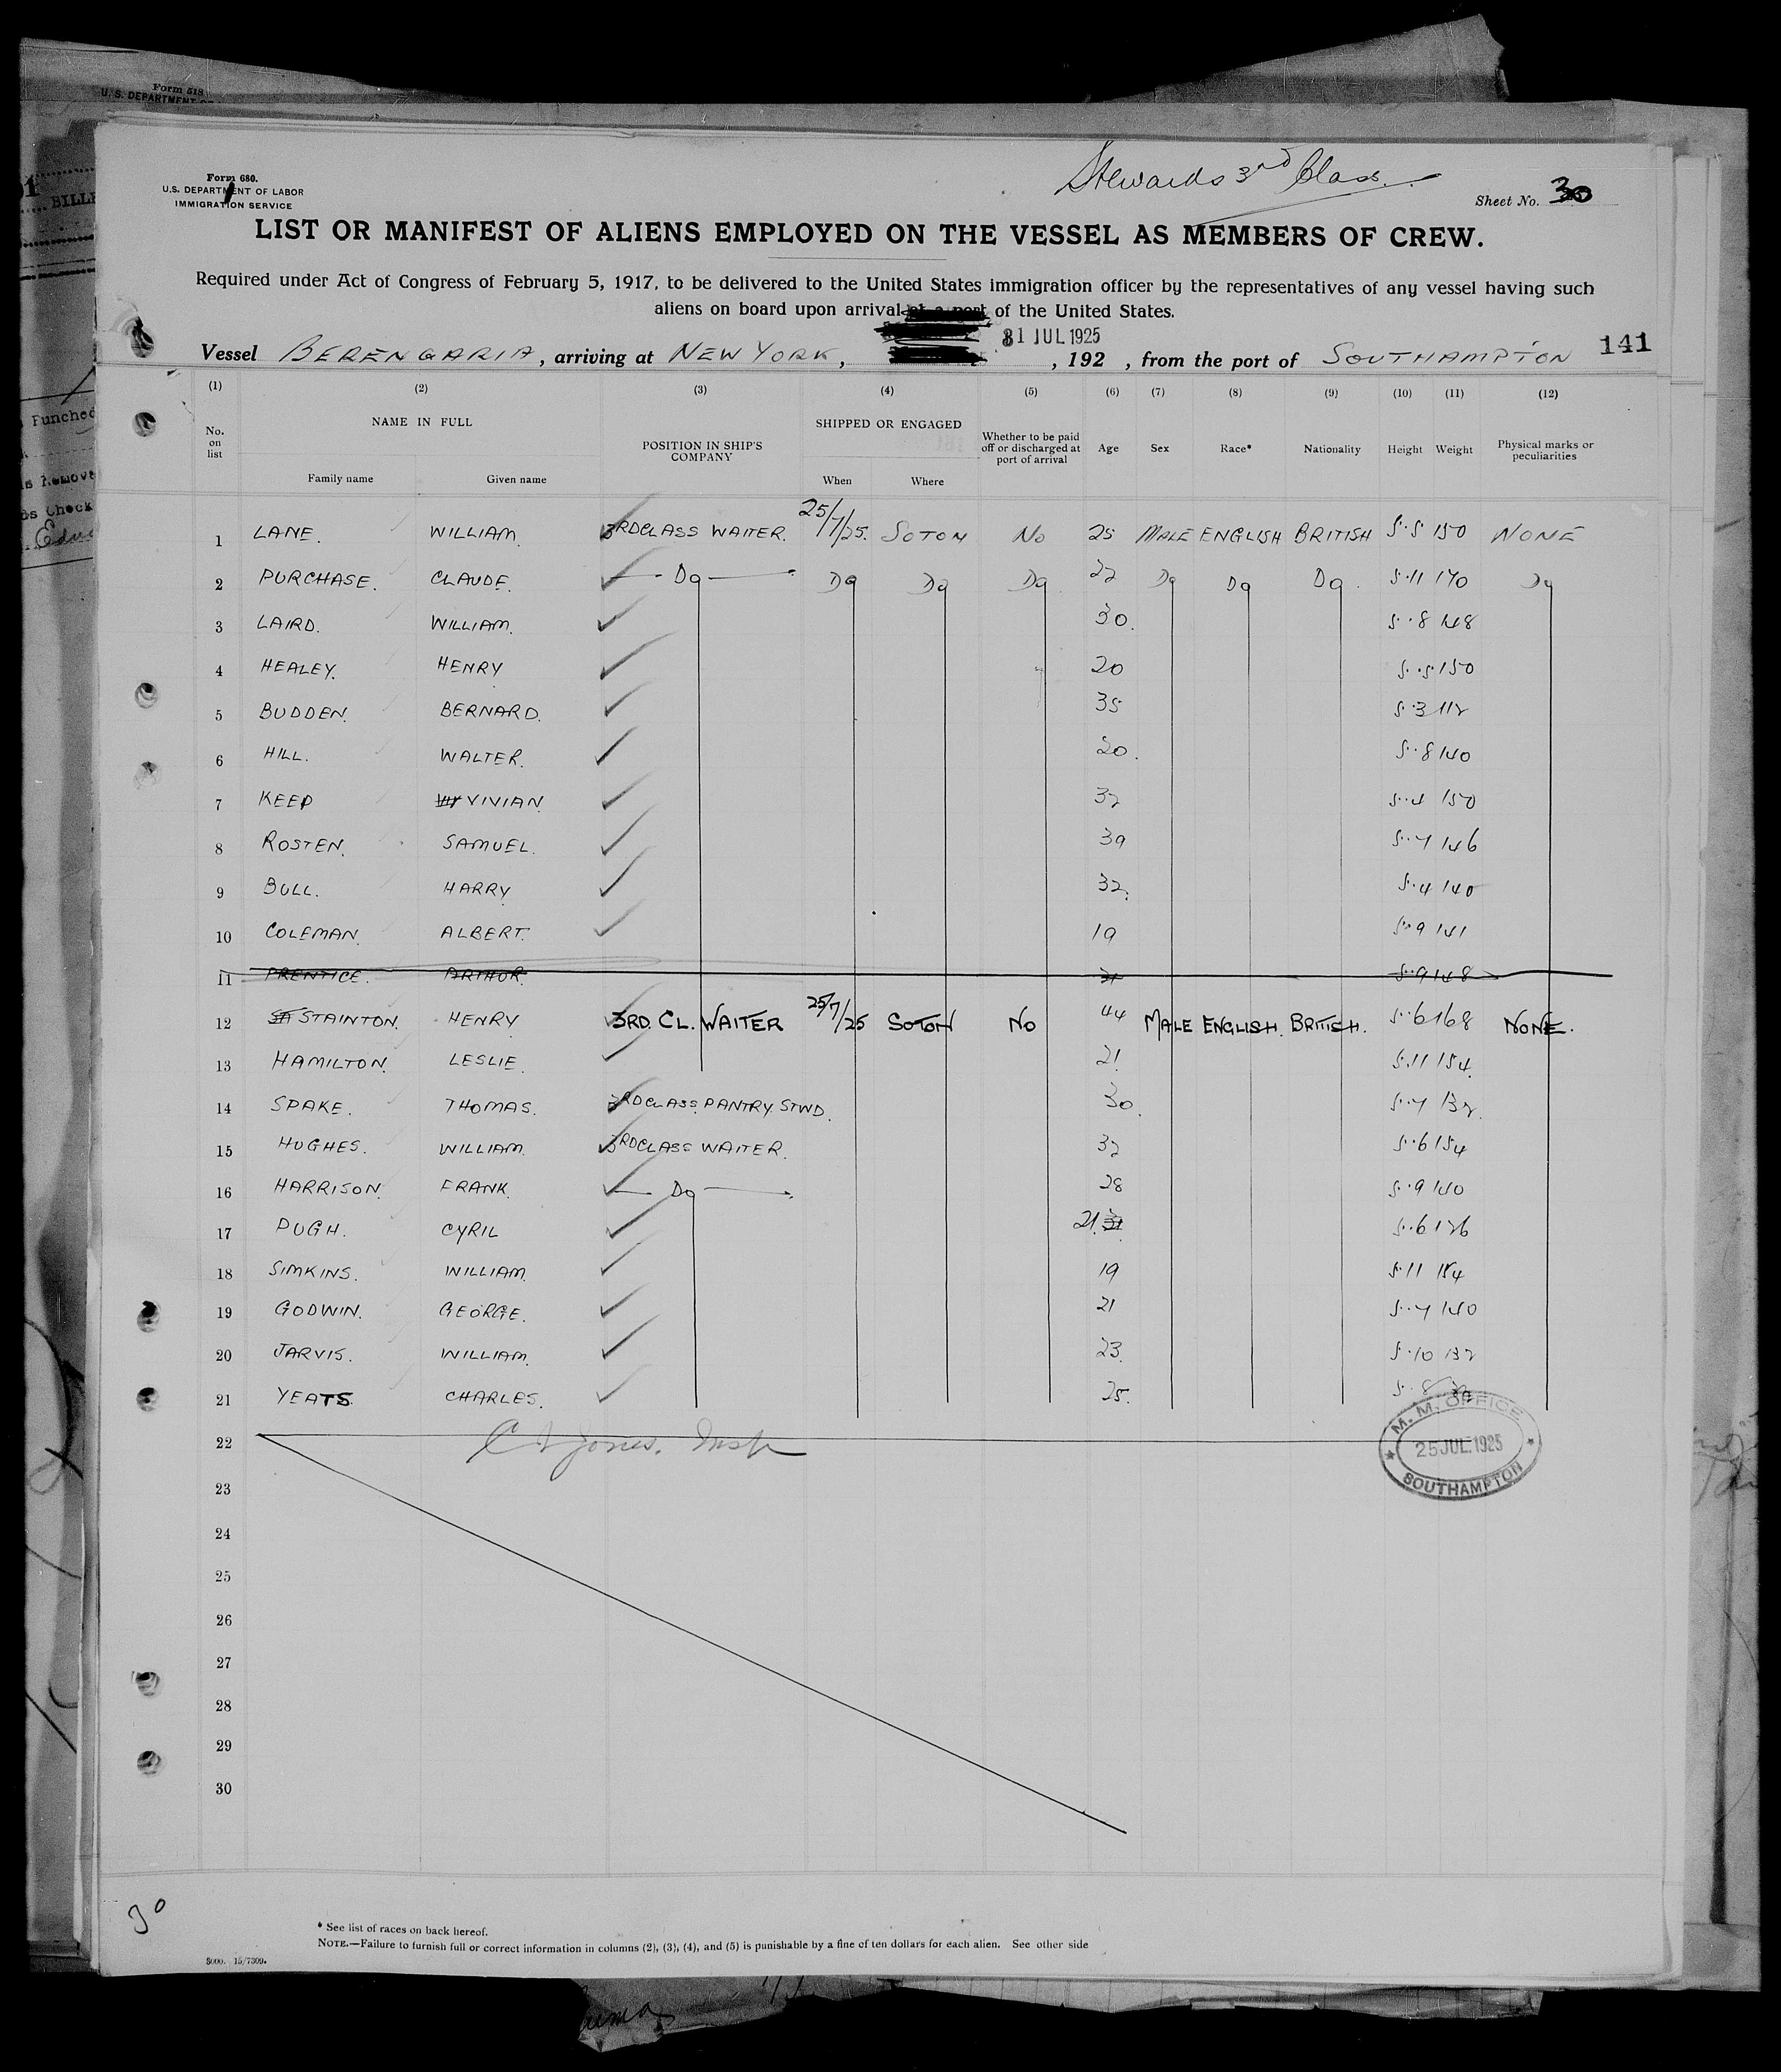 Form 518
U. S. DEPARTMENT
BILL
Punched
Remove
Check
Form 680.
U.S. DEPARTMENT OF LABOR
IMMIGRATION SERVICE
Stewards 3rd Class.
Sheet No. 30
LIST OR MANIFEST OF ALIENS EMPLOYED ON THE VESSEL AS MEMBERS OF CREW.
Required under Act of Congress of February 5, 1917, to be delivered to the United States immigration officer by the representatives of any vessel having such
aliens on board upon arrival at a port of the United States.
31 JUL 1925
Vessel BERENGARIA, arriving at NEW YORK, , 192 , from the port of SOUTHAMPTON 141
(1) (2) (3) (4) (5) (6) (7) (8) (9) (10) (11) (12)
No. on list NAME IN FULL POSITION IN SHIP'S COMPANY SHIPPED OR ENGAGED Whether to be paid off or discharged at port of arrival Age Sex Race* Nationality Height Weight Physical marks or peculiarities
Family name Given name When Where
1 LANE. WILLIAM. 3RD CLASS WAITER. 25/7/25. SOTON No 25 MALE ENGLISH BRITISH 5.5 150 NONE
2 PURCHASE. CLAUDE. Do Do Do Do 22 Do Do Do. 5.11 170 Do
3 LAIRD. WILLIAM. 30. 5.8 148
4 HEALEY. HENRY 20 5.5 150
5 BUDDEN. BERNARD. 35 5.3 112
6 HILL. WALTER. 20. 5.8 140
7 KEEP VIVIAN. 32 5.4 150
8 ROSTEN. SAMUEL. 39 5.7 146
9 BULL. HARRY 32. 5.4 140
10 COLEMAN. ALBERT. 19 5.9 141
11 PRENTICE. ARTHUR. 21 5.9 148
12 STAINTON. HENRY 3RD. CL. WAITER 25/7/25 SOTON No 44 MALE ENGLISH. BRITISH. 5.6 168 NONE.
13 HAMILTON. LESLIE. 21. 5.11 154.
14 SPAKE. THOMAS. 3RD CLASS PANTRY STWD. 30. 5.7 132.
15 HUGHES. WILLIAM. 3RD CLASS WAITER. 32 5.6 154
16 HARRISON. FRANK. Do 28 5.9 140
17 PUGH. CYRIL 21. 5.6 126
18 SIMKINS. WILLIAM. 19 5.11 154
19 GODWIN. GEORGE. 21 5.7 140
20 JARVIS. WILLIAM. 23. 5.10 132
21 YEATS. CHARLES. 25. 5.8
22 Jones. Insp
M. M. OFFICE
25 JUL. 1925
SOUTHAMPTON
23
24
25
26
27
28
29
30
30
* See list of races on back hereof.
NOTE.—Failure to furnish full or correct information in columns (2), (3), (4), and (5) is punishable by a fine of ten dollars for each alien. See other side
5000. 15/7309.